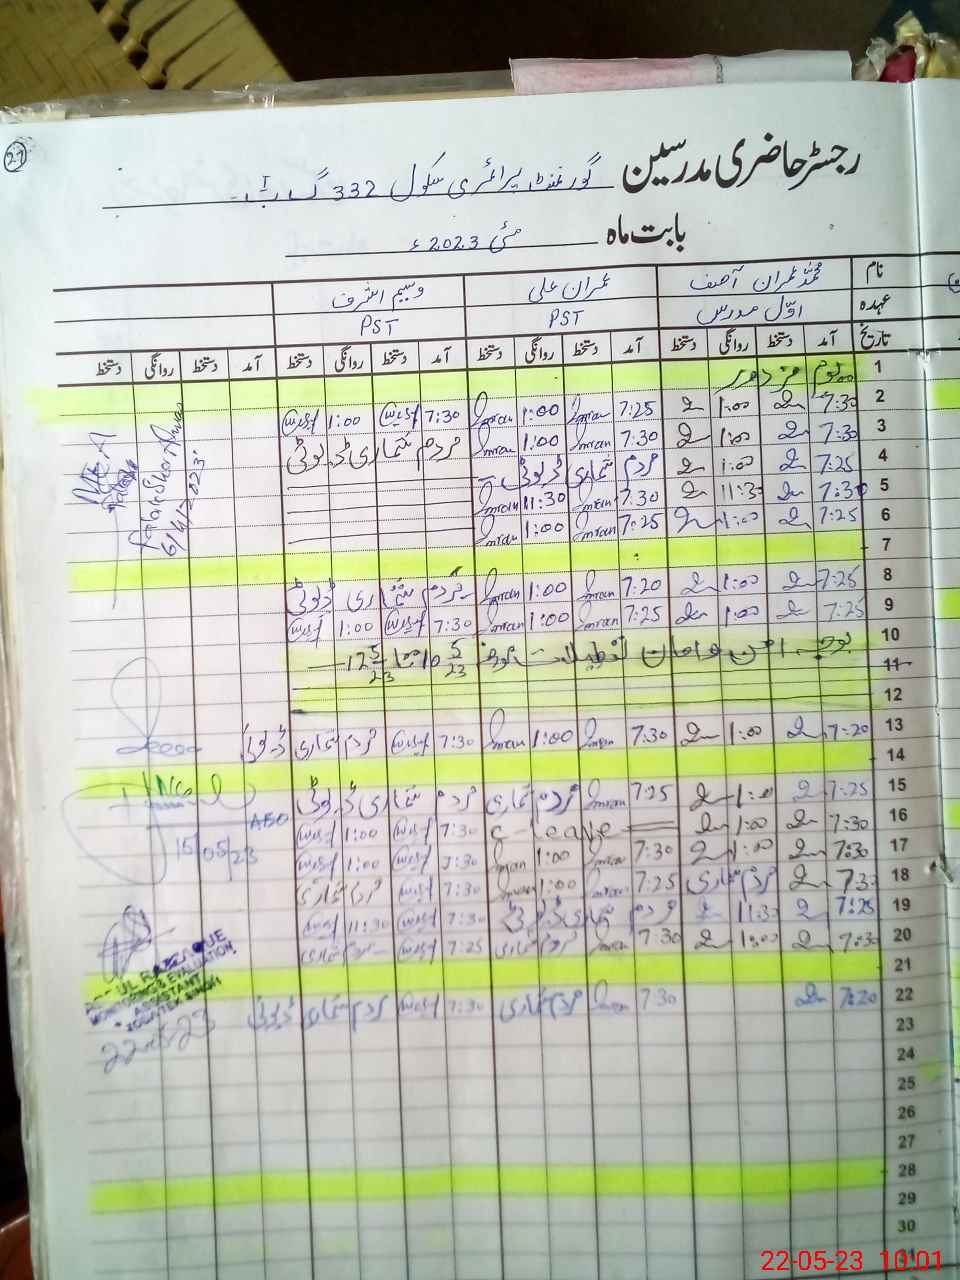 27
رجسٹر حاضری مدرسین گورنمنٹ پرائمری سکول 332 گ ب I
بابت ماہ مئی 2023ء
نام محمد عمران آصف عمران علی وسیم اشرف
عہدہ اوّل مدرس PST PST
تاریخ آمد دستخط روانگی دستخط آمد دستخط روانگی دستخط آمد دستخط روانگی دستخط آمد دستخط روانگی دستخط
1 یوم مزدور
2 7:30 1:00 7:25 Imran 1:00 Imran 7:30 وسیم 1:00 وسیم
3 7:30 1:00 7:30 Imran 1:00 Imran مردم شماری ڈیوٹی
4 7:25 1:00 مردم شماری ڈیوٹی
5 7:30 11:30 7:30 Imran 11:30 Imran
6 7:25 1:00 7:25 Imran 1:00 Imran
7
8 7:25 1:00 7:20 Imran 1:00 Imran مردم شماری ڈیوٹی
9 7:25 1:00 7:25 Imran 1:00 Imran 7:30 وسیم 1:00 وسیم
10 بوجہ امن و امان تعطیلات مورخہ 10 5/23 تا 12 5/23
11
12
13 7:20 1:00 7:30 Imran 1:00 Imran 7:30 وسیم مردم شماری ڈیوٹی
14
15 7:25 1:00 7:25 Imran مردم شماری مردم شماری ڈیوٹی
16 7:30 1:00 C-leave 7:30 وسیم 1:00 وسیم
17 7:30 1:00 7:30 Imran 1:00 Imran 7:30 وسیم 1:00 وسیم
18 7:30 مردم شماری 7:25 Imran 1:00 Imran 7:30 وسیم مردم شماری
19 7:25 11:30 مردم شماری ڈیوٹی 7:30 وسیم 11:30 وسیم
20 7:30 1:00 7:30 Imran مردم شماری 7:25 وسیم مردم شماری
21
22 7:20 7:30 Imran مردم شماری 7:30 وسیم مردم شماری ڈیوٹی
23
24
25
26
27
28
29
30
31
AEO
15/05/23
MONITORING & EVALUATION
ASSISTANT
22-5-23
22-05-23 10:01